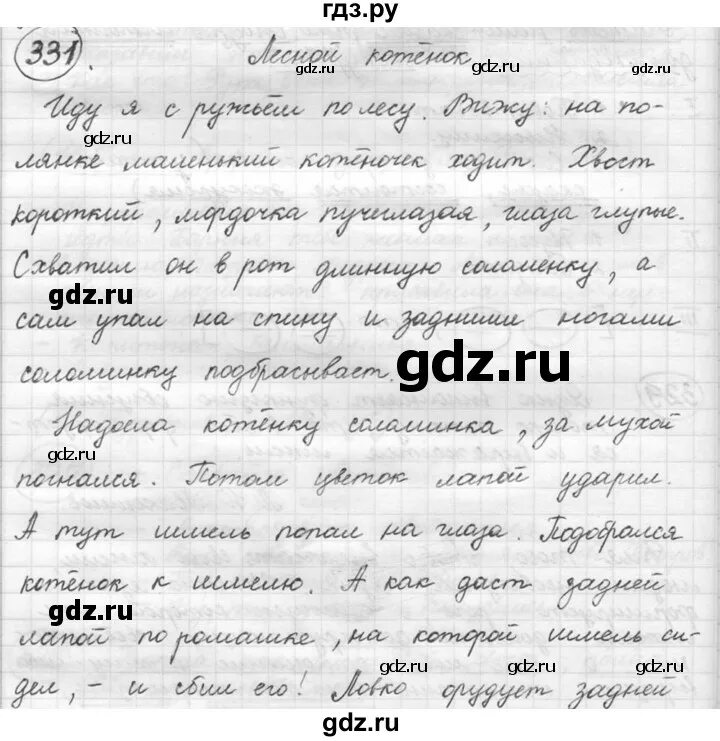 гдз.ру
331. Лесной котёнок
Иду я с ружьём по лесу. Вижу: на по-
лянке маленький котёночек ходит. Хвост
короткий, мордочка пучеглазая, глаза глупые.
Схватил он в рот длинную соломенку, а
сам упал на спину и задними ногами
соломинку подбрасывает.
Надоела котёнку соломинка, за мухой
погнался. Потом цветок лапой ударил.
А тут шмель попал на глаза. Подобрался
котёнок к шмелю. А как даст задней
лапой по ромашке, на которой шмель си-
дел, – и сбил его! Ловко орудует задней
gdz.ru
gdz.ru
gdz.ru
gdz.ru
gdz.ru
gdz.ru
gdz.ru
gdz.ru
gdz.ru
gdz.ru
gdz.ru
gdz.ru
gdz.ru
гдз.ру